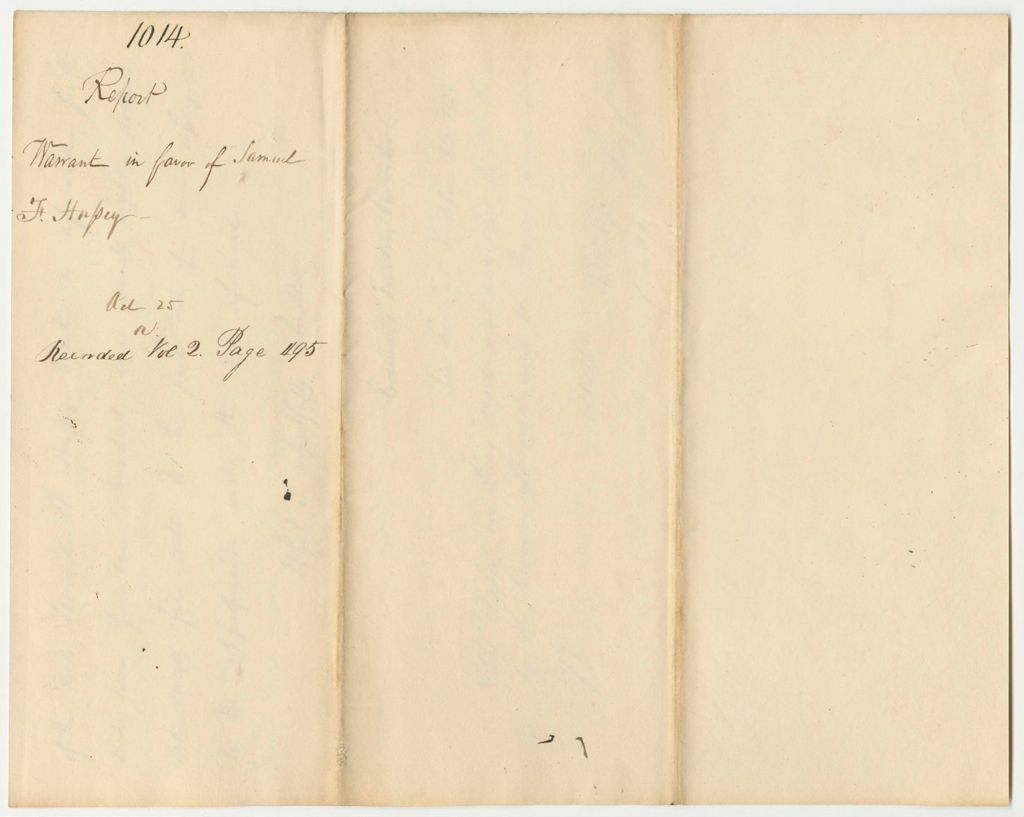 1014.
Report
Warrant in favor of Samuel
F. Hussey
Oct 25
Recorded Vol 2. Page 495